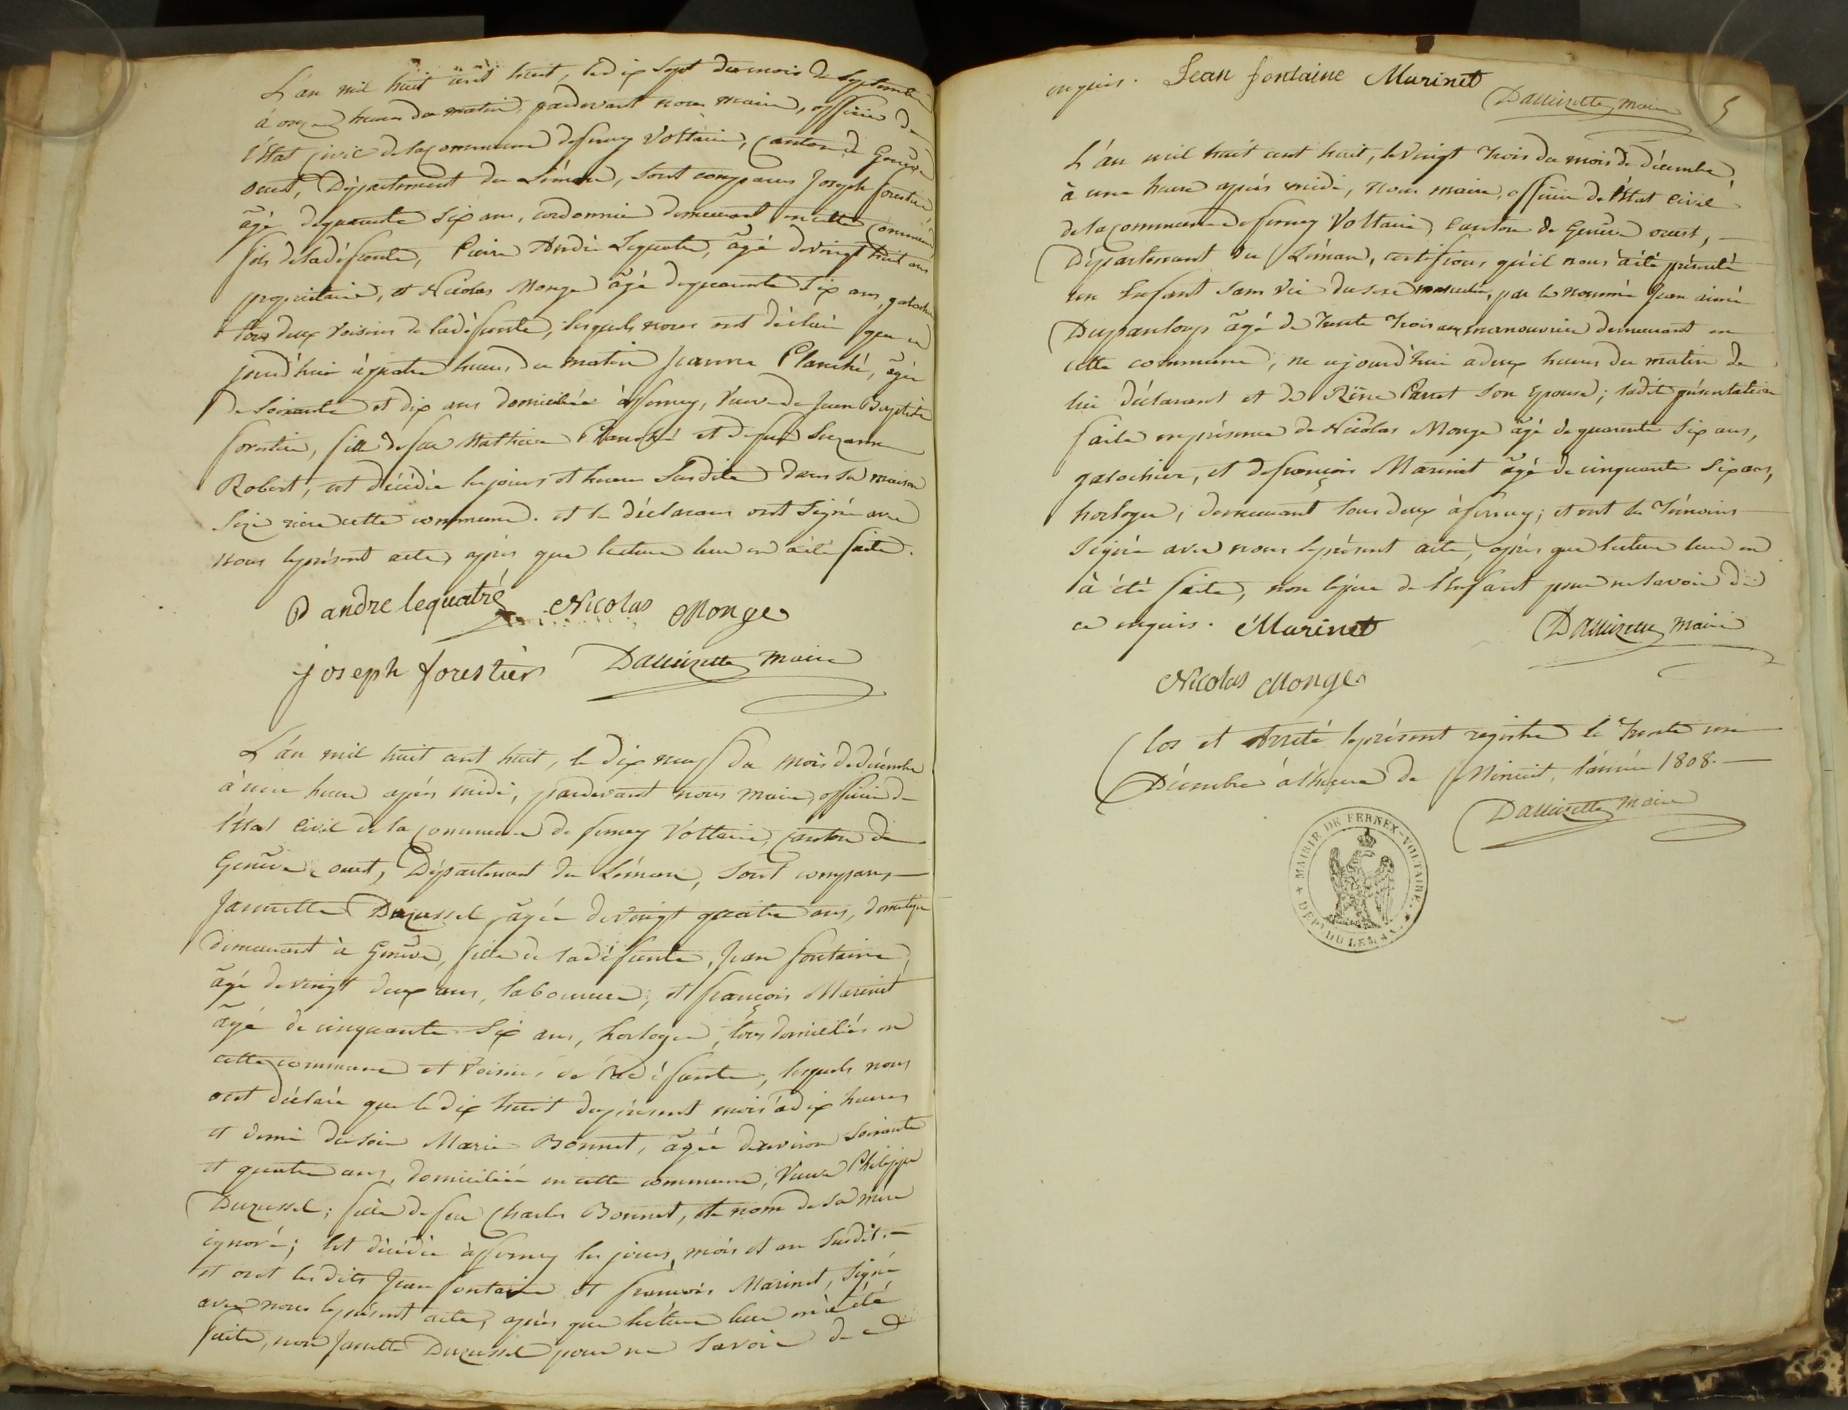 L'an mil huit cent huit, le dix sept du mois de Septembre
à onze heures du matin, pardevant nous maire, officier de
l'état civil de la commune de ferney Voltaire, canton de Genève
ouest, Département du Léman, sont comparus Joseph forestier
âgé de quarante six ans, cordonnier demeurant en cette commune
fils de la défunte, Pierre André Lequatre, âgé de vingt huit ans
propriétaire, et Nicolas Monge âgé de quarante six ans, galochier
tous deux voisins de la défunte, lesquels nous ont déclaré que ce
jourd'hui à quatre heures du matin Jeanne Planché, âgée
de soixante et dix ans domiciliée à fferney, Veuve de Jean Baptiste
forestier, fille de feu Mathieu Planché et de feue Suzanne
Robert, est décédée les jours et heure susdite dans sa maison
size riere cette commune. et les déclarans ont signé avec
nous le présent acte, après que lecture leur en a été faite.
P andre lequatre Nicolas Monge
joseph forestier maire
L'an mil huit cent huit, le dix neuf du mois de décembre
à une heure après midi, pardevant nous maire, officier de
l'état civil de la commune de ferney Voltaire, canton de
Genève ouest, Département du Léman, sont comparus
Jannette Duzussel, âgée de vingt quatre ans, domestique
demeurant à Genève, fille de la défunte, Jean fontaine,
âgé de vingt deux ans, laboureur; et françois Marinet
âgé de cinquante six ans, horloger, tous domiciliés en
cette commune et voisins de la défunte, lesquels nous
ont déclaré que le dix huit du présent mois à dix heures
et demi du soir Marie Bonnet, âgée d'environ soixante
et quatre ans, domiciliée en cette commune, Veuve Philippe
Duzussel; fille de feu Charles Bonnet, et le nom de sa mère
ignoré; est décédée à fferney les jours, mois et an susdit.
et ont les dits Jean fontaine et françois Marinet, signé
avec nous le présent acte, après que lecture leur en a été
faite, non Janette Duzussel pour ne savoir de ce
enquis. Jean fontaine Murinet
maire 5
L'an mil huit cent huit, le vingt trois du mois de décembre
à une heure après midi, nous maire, officier de l'état civil
de la commune de ferney Voltaire, canton de Genève ouest,
Département du Léman, certifions qu'il nous a été présenté
un Enfant sans vie du sexe masculin, par le nommé Jean aimé
Dupanloup âgé de trente trois ans, manouvrier demeurant en
cette commune, né aujourd'hui à deux heures du matin de
lui déclarant et de Rëne Parret son Epouse; ladite présentation
faite en présence de Nicolas Monge âgé de quarante six ans,
galochier, et de françois Marinet âgé de cinquante six ans,
horloger, demeurant tous deux à ferney; et ont les témoins
signé avec nous le présent acte, après que lecture leur en
à été faite, non le père de l'Enfant pour ne savoir de
ce enquis. Murinet maire
Nicolas Monge
Clos et Arrêté le présent registre le trente un
Décembre à l'heure de Minuit, l'année 1808.
maire
MAIRIE DE FERNEX-VOLTAIRE.
DEPT DU LEMAN.